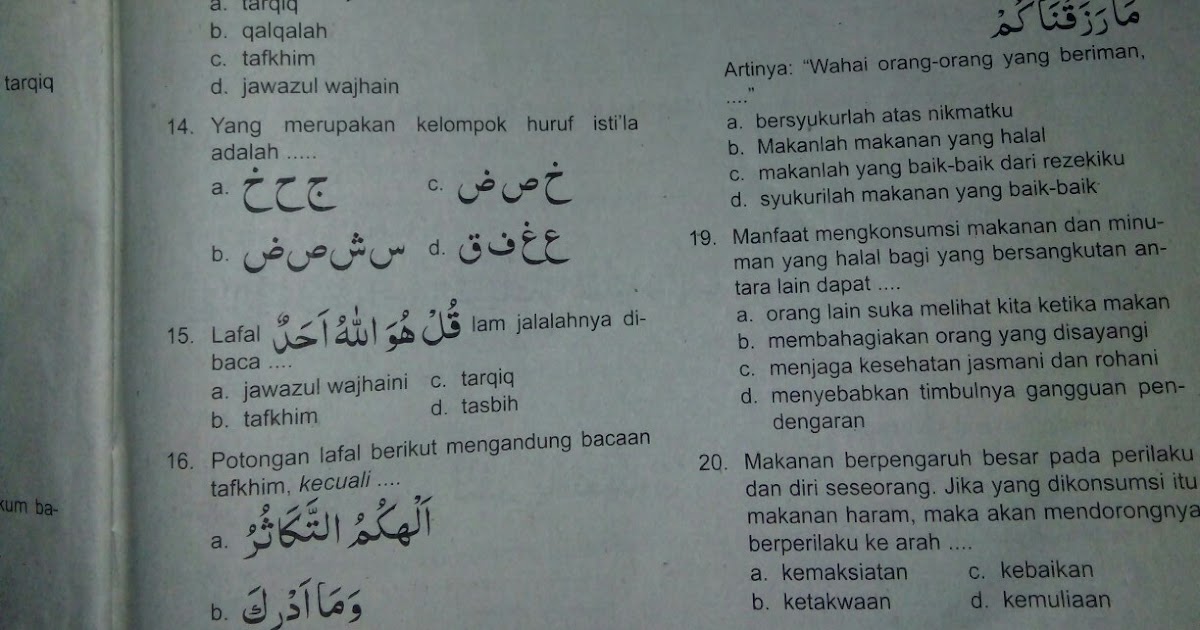 tarqiq
kum ba-
a. tarqiq
b. qalqalah
c. tafkhim
d. jawazul wajhain
14. Yang merupakan kelompok huruf isti'la
adalah .....
a. ج ح خ c. خ ص ض
b. س ش ص ض d. ع غ ف ق
15. Lafal قُلْ هُوَ اللّٰهُ اَحَدٌ lam jalalahnya di-
baca ....
a. jawazul wajhaini c. tarqiq
b. tafkhim d. tasbih
16. Potongan lafal berikut mengandung bacaan
tafkhim, kecuali ....
a. اَلْهٰكُمُ التَّكَاثُرُ
b. وَمَا اَدْرٰىكَ
مَا رَزَقْنَاكُمْ
Artinya: “Wahai orang-orang yang beriman,
....”
a. bersyukurlah atas nikmatku
b. Makanlah makanan yang halal
c. makanlah yang baik-baik dari rezekiku
d. syukurilah makanan yang baik-baik
19. Manfaat mengkonsumsi makanan dan minu-
man yang halal bagi yang bersangkutan an-
tara lain dapat ....
a. orang lain suka melihat kita ketika makan
b. membahagiakan orang yang disayangi
c. menjaga kesehatan jasmani dan rohani
d. menyebabkan timbulnya gangguan pen-
dengaran
20. Makanan berpengaruh besar pada perilaku
dan diri seseorang. Jika yang dikonsumsi itu
makanan haram, maka akan mendorongnya
berperilaku ke arah ....
a. kemaksiatan c. kebaikan
b. ketakwaan d. kemuliaan